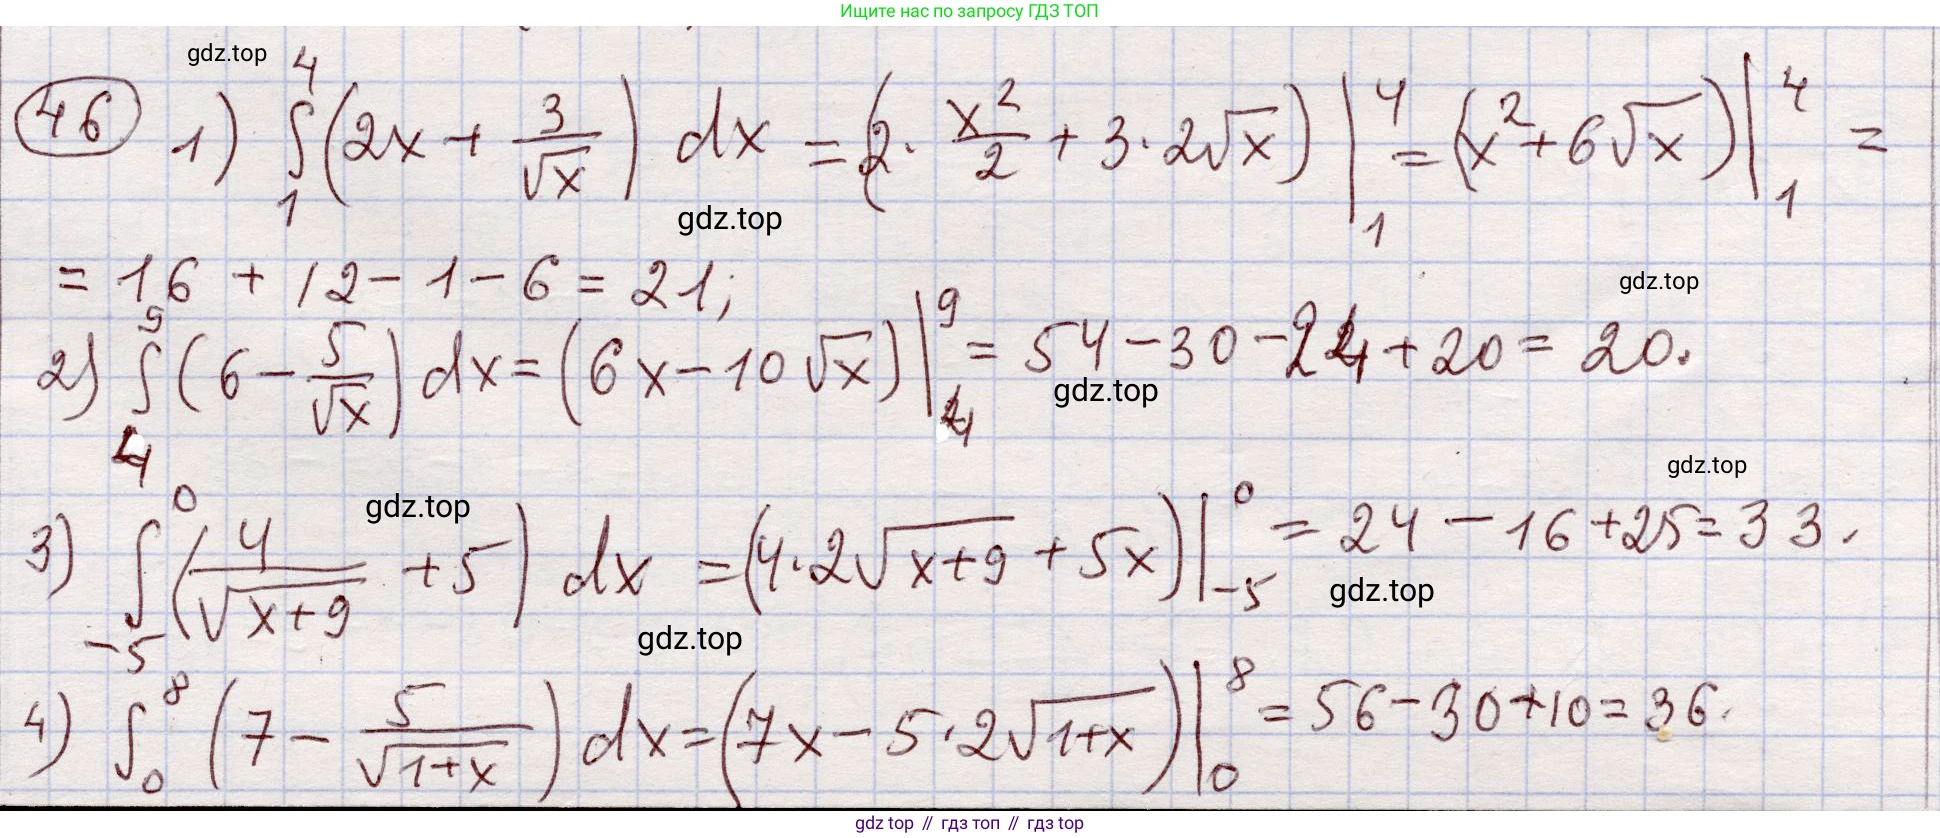 Ищите нас по запросу ГДЗ ТОП
gdz.top
46 1) ∫₁⁴ (2x + 3/√x) dx = (2 · x²/2 + 3 · 2√x) |₁⁴ = (x² + 6√x) |₁⁴ =
gdz.top
= 16 + 12 - 1 - 6 = 21;
gdz.top
2) ∫₄⁹ (6 - 5/√x) dx = (6x - 10√x) |₄⁹ = 54 - 30 - 24 + 20 = 20.
gdz.top
gdz.top
gdz.top
3) ∫₋₅⁰ (4/√(x+9) + 5) dx = (4 · 2√(x+9) + 5x) |₋₅⁰ = 24 - 16 + 25 = 33.
gdz.top
gdz.top
4) ∫₀⁸ (7 - 5/√(1+x)) dx = (7x - 5 · 2√(1+x)) |₀⁸ = 56 - 30 + 10 = 36.
gdz top // гдз топ // гдз top